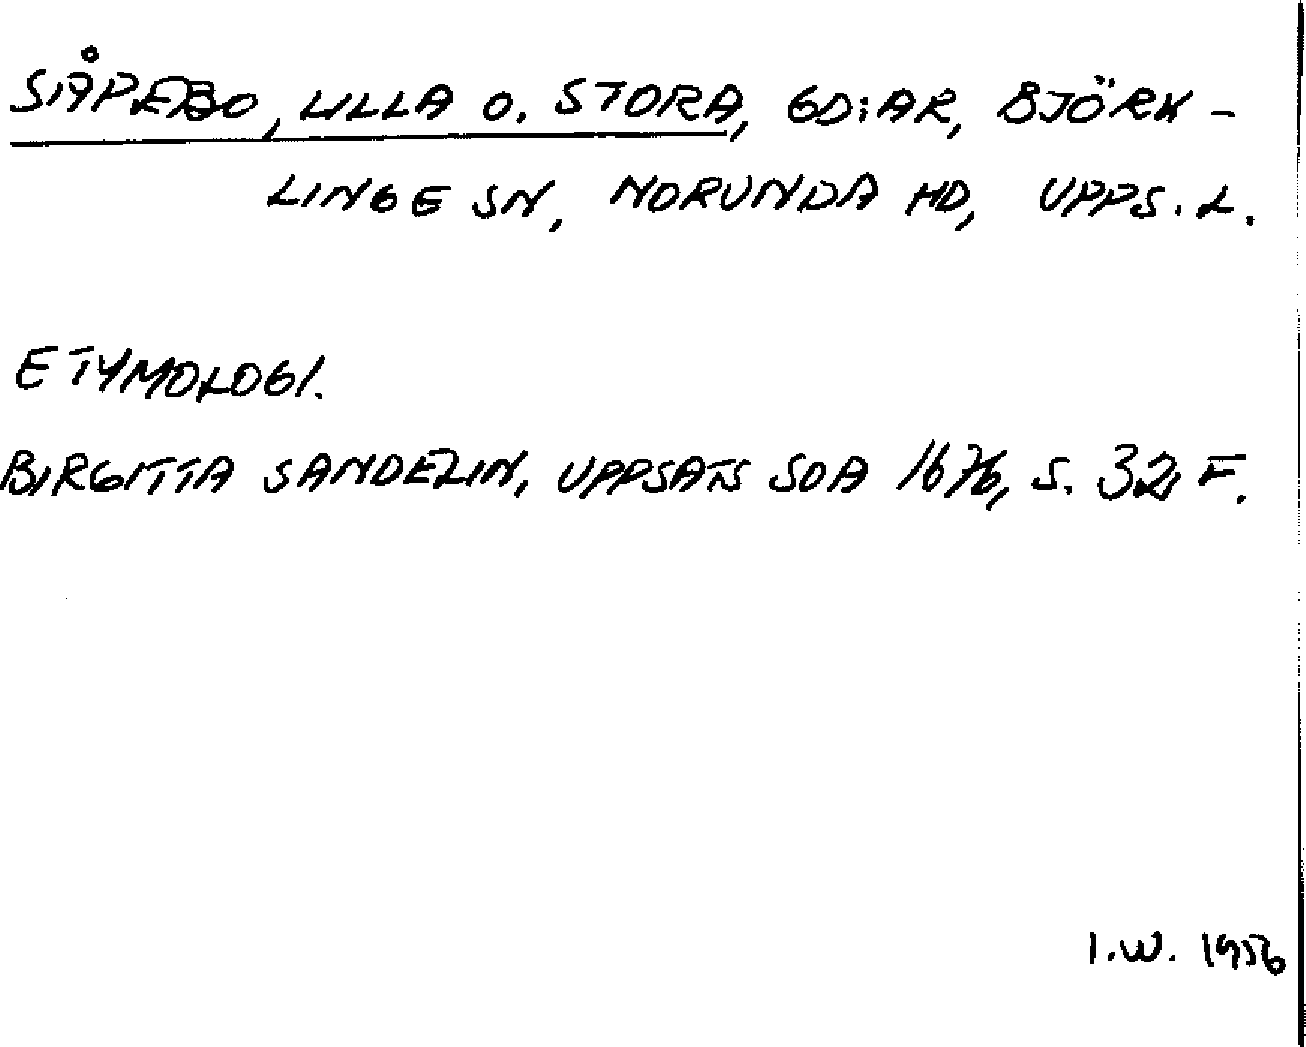 SÅPEBO, LILLA O. STORA, GD:AR, BJÖRK-
LINGE SN, NORUNDA HD, UPPS. L.
ETYMOLOGI.
BIRGITTA SANDELIN, UPPSATS SOA 1676, S. 32 F.
I.W. 1956